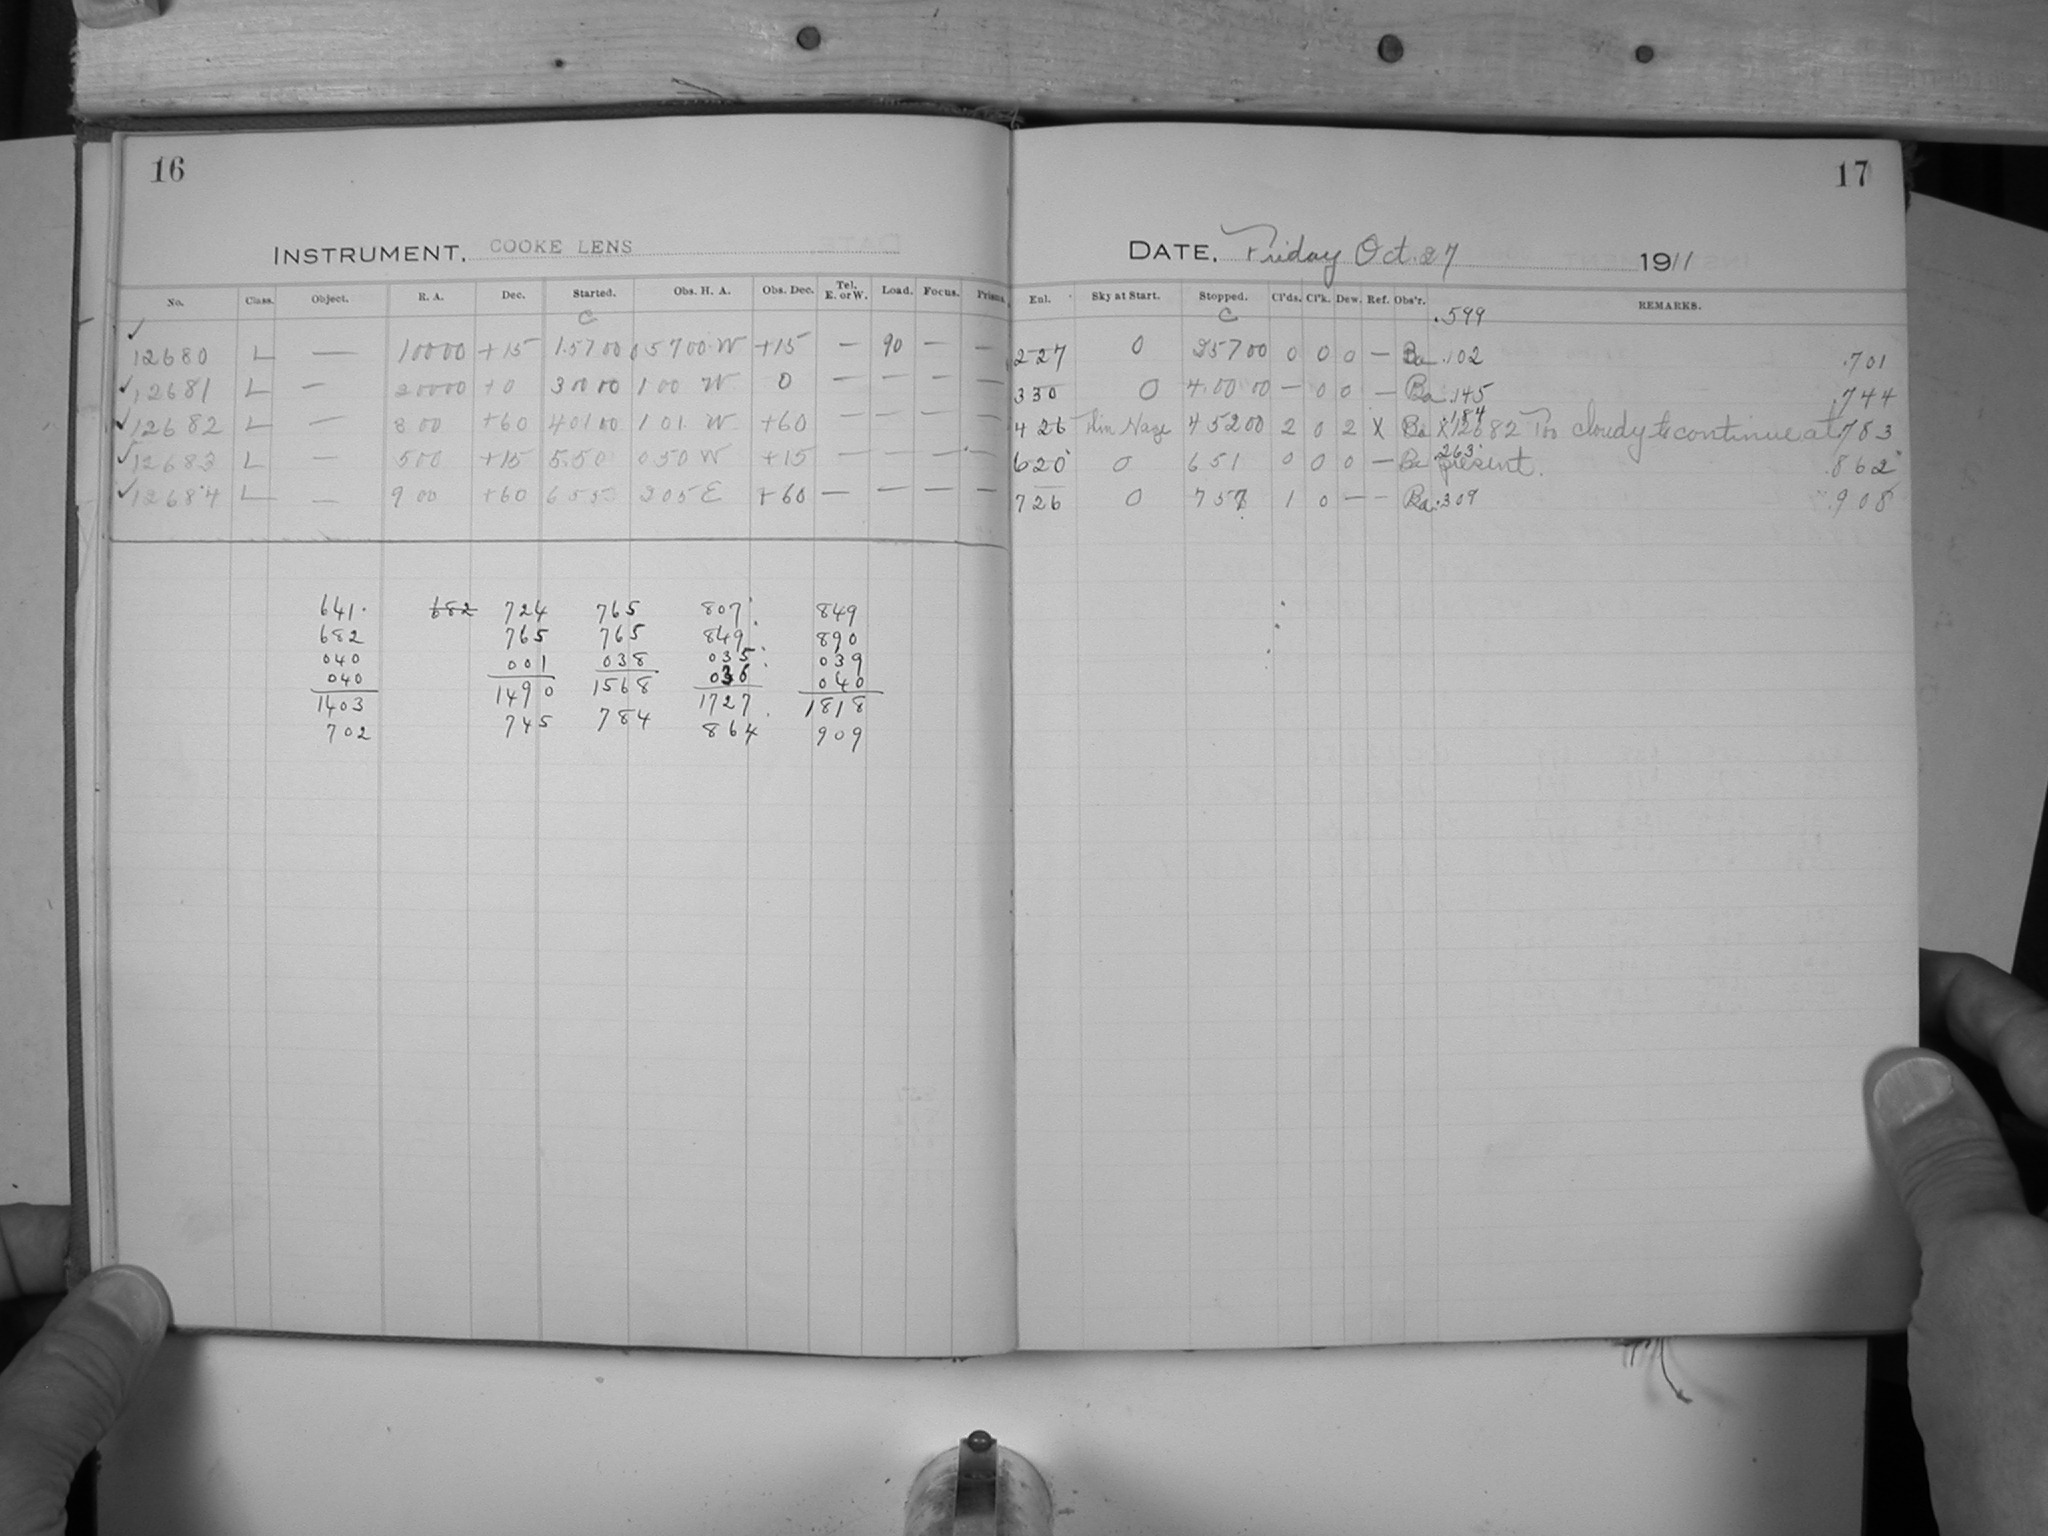 16
INSTRUMENT. COOKE LENS
No. Class. Object. R. A. Dec. Started. Obs. H. A. Obs. Dec. Tel. E. or W. Load. Focus. Prisms.
C
✓ 12680 L — 10000 +15 1.5700 05700 W +15 — 90 — —
✓ 12681 L — 20000 +0 30000 100 W 0 — — — —
✓ 12682 L — 300 +60 40100 101 W +60 — — — —
✓ 12683 L — 500 +15 550 050 W +15 — — — —
✓ 12684 L — 900 +60 655 205 E +60 — — — —
641. 682 724 765 807 849
682 765 765 849 890
040 001 038 035 039
040 036 040
1403 1490 1568 1727 1818
702 745 784 864 909
17
DATE. Friday Oct. 27 1911
Enl. Sky at Start. Stopped. Cl'ds. Cl'k. Dew. Ref. Obs'r. REMARKS.
C .599
227 0 25700 0 0 0 — Ba .102 .701
330 0 40000 — 0 0 — Ba .145 .744
426 Thin Haze 45200 2 0 2 X Ba .184 X12682 Too cloudy to continue at .783
620 0 651 0 0 0 — Ba .263 present. .862
726 0 757 1 0 — — Ba .309 .908